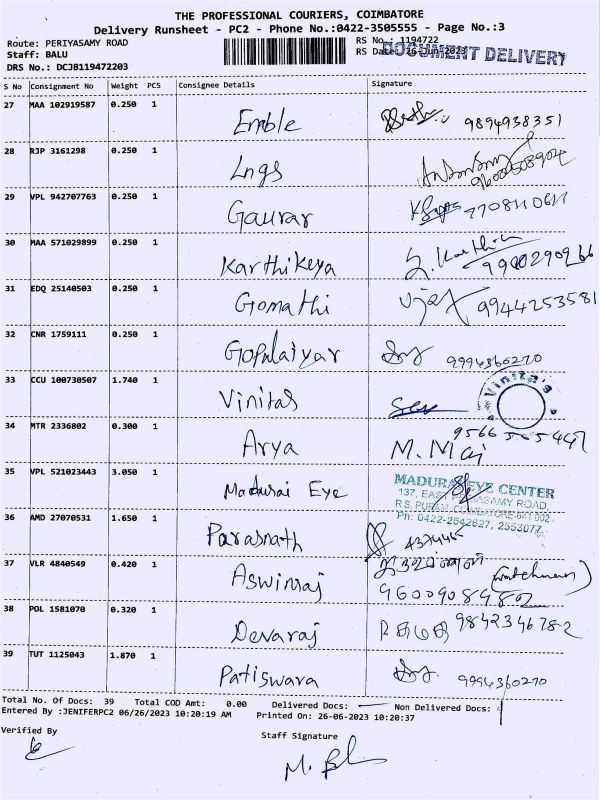 THE PROFESSIONAL COURIERS, COIMBATORE
Delivery Runsheet - PC2 - Phone No.:0422-3505555 - Page No.:3
Route: PERIYASAMY ROAD
RS No.: 1194722
Staff: BALU
RS Date: 26-Jun-2023
DOCUMENT DELIVERY
DRS No.: DCJB119472203
S No Consignment No Weight PCS Consignee Details Signature
27 MAA 102919587 0.250 1 Emble 9894938351
28 RJP 3161298 0.250 1 Lngs
29 VPL 942707763 0.250 1 Gaurar
30 MAA 571029899 0.250 1 Karthikeya S. Karthick
31 EDQ 25140503 0.250 1 Gomathi Vijay 9944253581
32 CNR 1759111 0.250 1 Gopalaiyar 9994360270
33 CCU 100730507 1.740 1 Vinitas
Vinita's
34 MTR 2336802 0.300 1 Arya M. Mai
35 VPL 521023443 3.050 1 Madurai Eye
MADURAI EYE CENTER
137, EAST PERIASAMY ROAD,
R.S. PURAM, COIMBATORE-641 002
Ph: 0422-2542627, 2553077
36 AMD 27070531 1.650 1 Parasnath
37 VLR 4840549 0.420 1 Aswinraj (watchman)
38 POL 1581070 0.320 1 Devaraj 9842346782
39 TUT 1125043 1.870 1 Patiswara 9994360270
Total No. Of Docs: 39 Total COD Amt: 0.00 Delivered Docs: Non Delivered Docs:
Entered By :JENIFERPC2 06/26/2023 10:20:19 AM Printed On: 26-06-2023 10:20:37
Verified By
Staff Signature